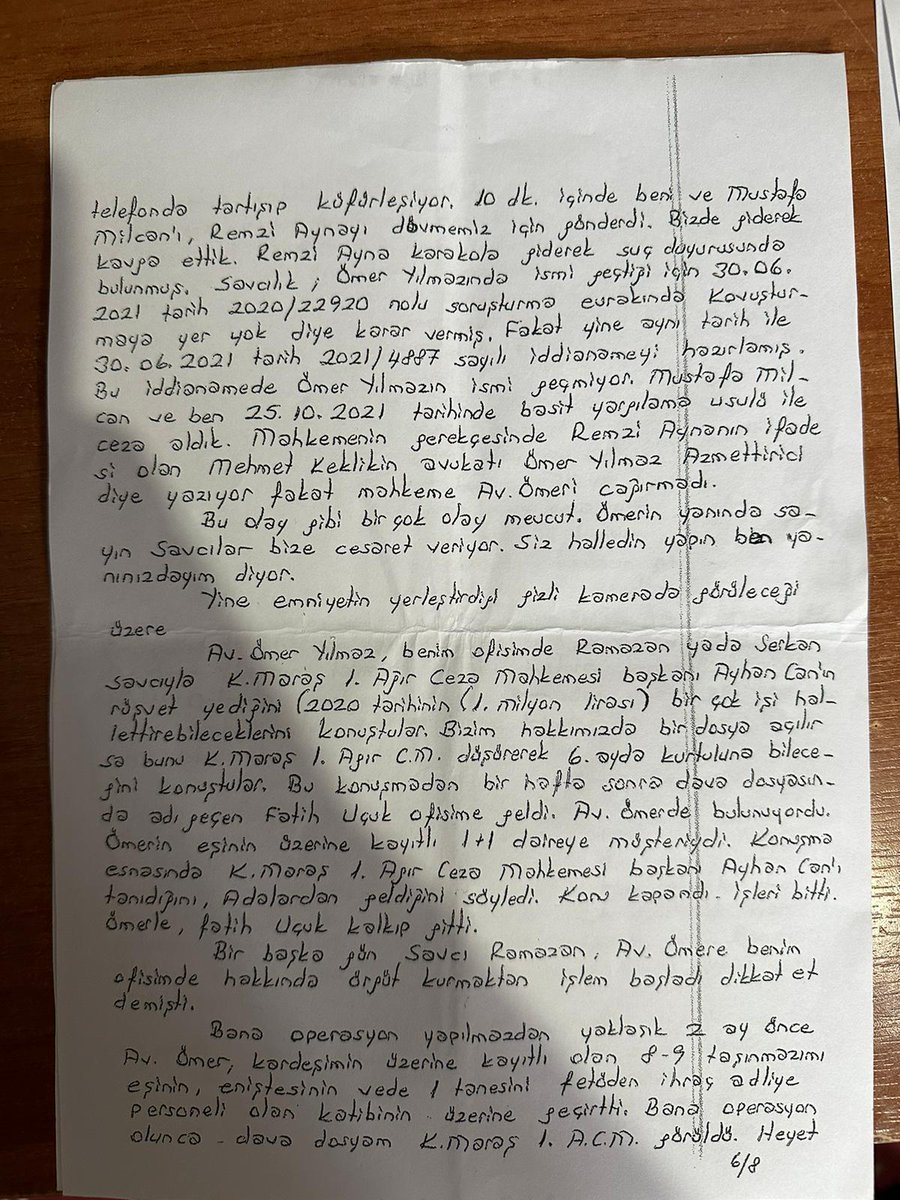 telefonda tartışıp küfürleşiyor. 10 dk. içinde beni ve Mustafa
Milcan'ı, Remzi Aynayı dövmemiz için gönderdi. Bizde giderek
kavga ettik. Remzi Ayna karakola giderek suç duyurusunda
bulunmuş. Savcılık ; Ömer Yılmazında ismi geçtiği için 30.06.
2021 tarih 2020/22920 nolu soruşturma evrakında Kovuştur-
maya yer yok diye karar vermiş. Fakat yine aynı tarih ile
30.06.2021 tarih 2021/4887 sayılı iddianameyi hazırlamış.
Bu iddianamede Ömer Yılmazın ismi geçmiyor. Mustafa Mil-
can ve ben 25.10.2021 tarihinde basit yargılama usulü ile
ceza aldık. Mahkemenin gerekçesinde Remzi Aynanın ifade
si olan Mehmet Keklikin avukatı Ömer Yılmaz Azmettirici
diye yazıyor fakat mahkeme Av. Ömeri çağırmadı.
Bu olay gibi bir çok olay mevcut. Ömerin yanında sa-
yın Savcılar bize cesaret veriyor. Siz halledin yapın ben ya-
nınızdayım diyor.
Yine emniyetin yerleştirdiği gizli kamerada görüleceği
üzere
Av. Ömer Yılmaz, benim ofisimde Ramazan yada Serkan
savcıyla K.Maraş 1. Ağır Ceza Mahkemesi başkanı Ayhan Can'ın
rüşvet yediğini (2020 tarihinin (1. milyon lirası) bir çok işi hal-
lettirebileceklerini konuştular. Bizim hakkımızda bir dosya açılır
sa bunu K.Maraş 1. Ağır C.M. düşürerek 6. ayda kurtuluna bilece-
ğini konuştular. Bu konuşmadan bir hafta sonra dava dosyasın-
da adı geçen Fatih Uçuk ofisime geldi. Av. Ömerde bulunuyordu.
Ömerin eşinin üzerine kayıtlı 1+1 daireye müşteriydi. Konuşma
esnasında K.Maraş 1. Ağır Ceza Mahkemesi başkanı Ayhan Can'ı
tanıdığını, Adalardan geldiğini söyledi. Konu kapandı. işleri bitti.
Ömerle, fatih Uçuk kalkıp gitti.
Bir başka gün Savcı Ramazan, Av. Ömere benim
ofisimde hakkında örgüt kurmaktan işlem başladı dikkat et
demişti.
Bana operasyon yapılmazdan yaklaşık 2 ay önce
Av. Ömer, kardeşimin üzerine kayıtlı olan 8-9 taşınmazımı
eşinin, eniştesinin vede 1 tanesini fetöden ihraç adliye
personeli olan katibinin üzerine geçirtti. Bana operasyon
olunca - dava dosyam K.Maraş 1. A.C.M. görüldü. Heyet
6/8